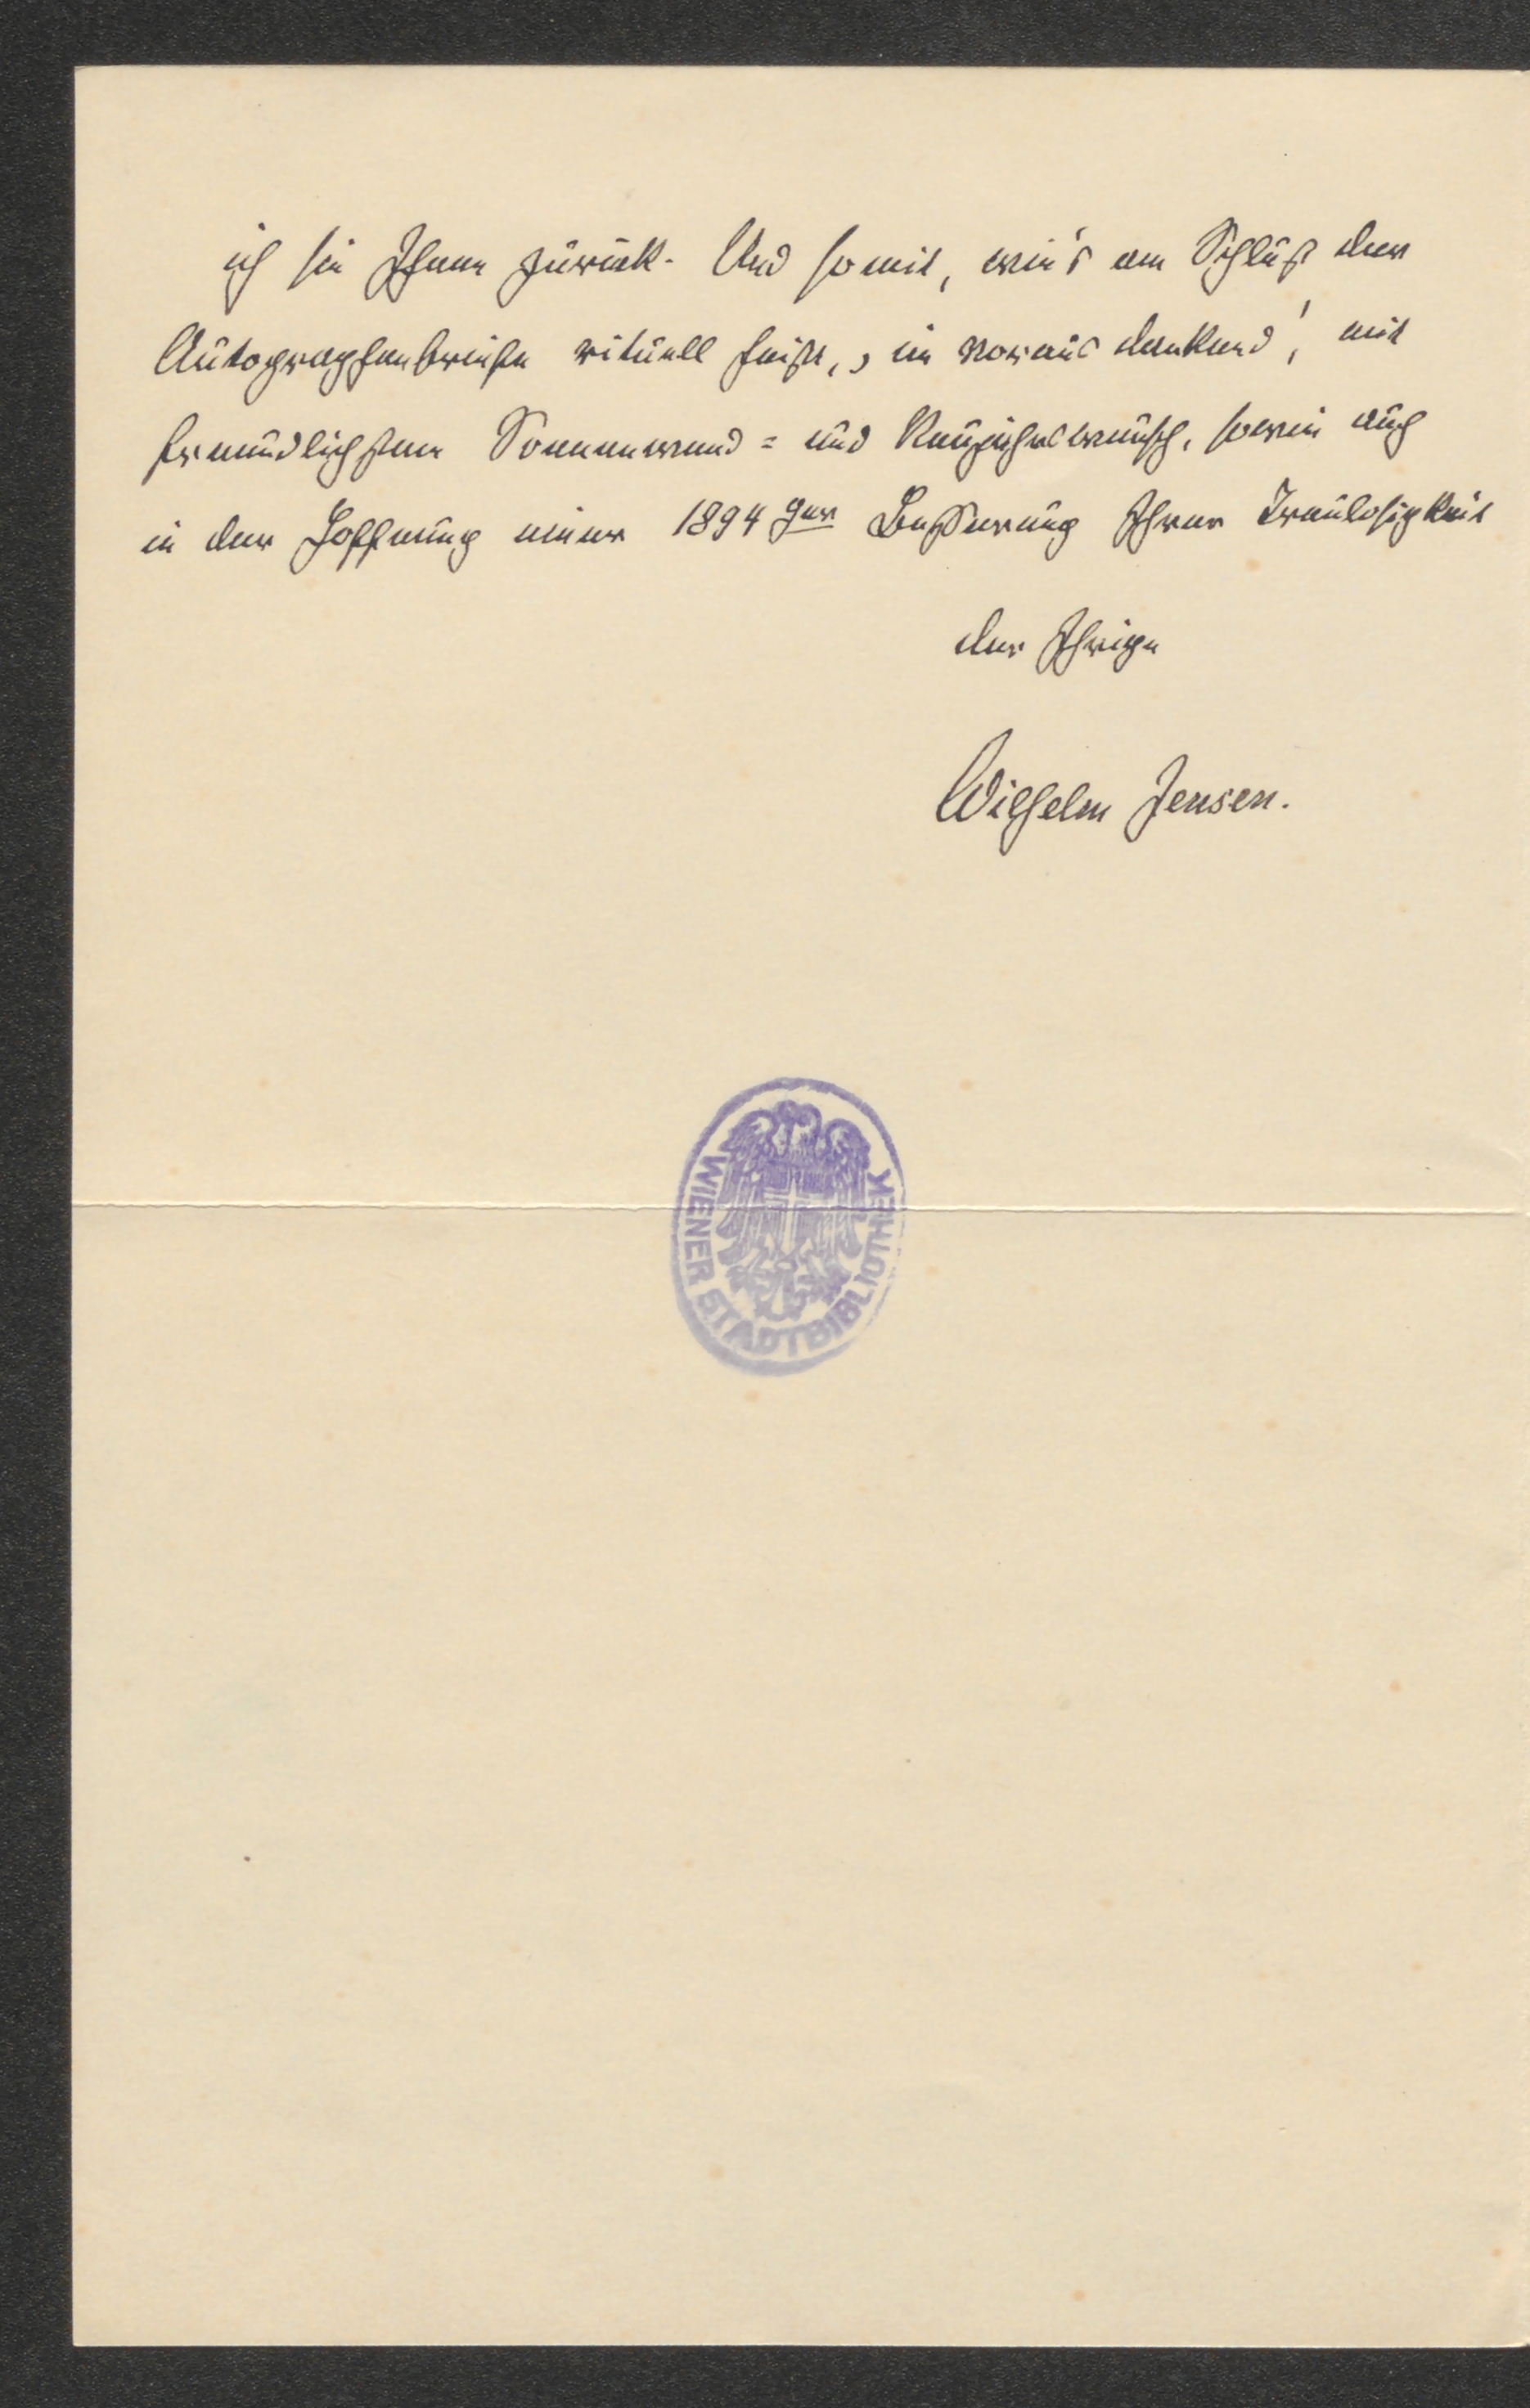 ich sie Ihnen zurück. Und somit, wie's am Schluß der
Autographenbriefe rituell heißt, ‚im voraus dankend', mit
freundlichstem Sonnenwend- und Neujahrswunsch, sowie auch
in der Hoffnung einer 1894ger Besserung Ihrer Treulosigkeit
der Ihrige
Wilhelm Jensen.
WIENER STADTBIBLIOTHEK